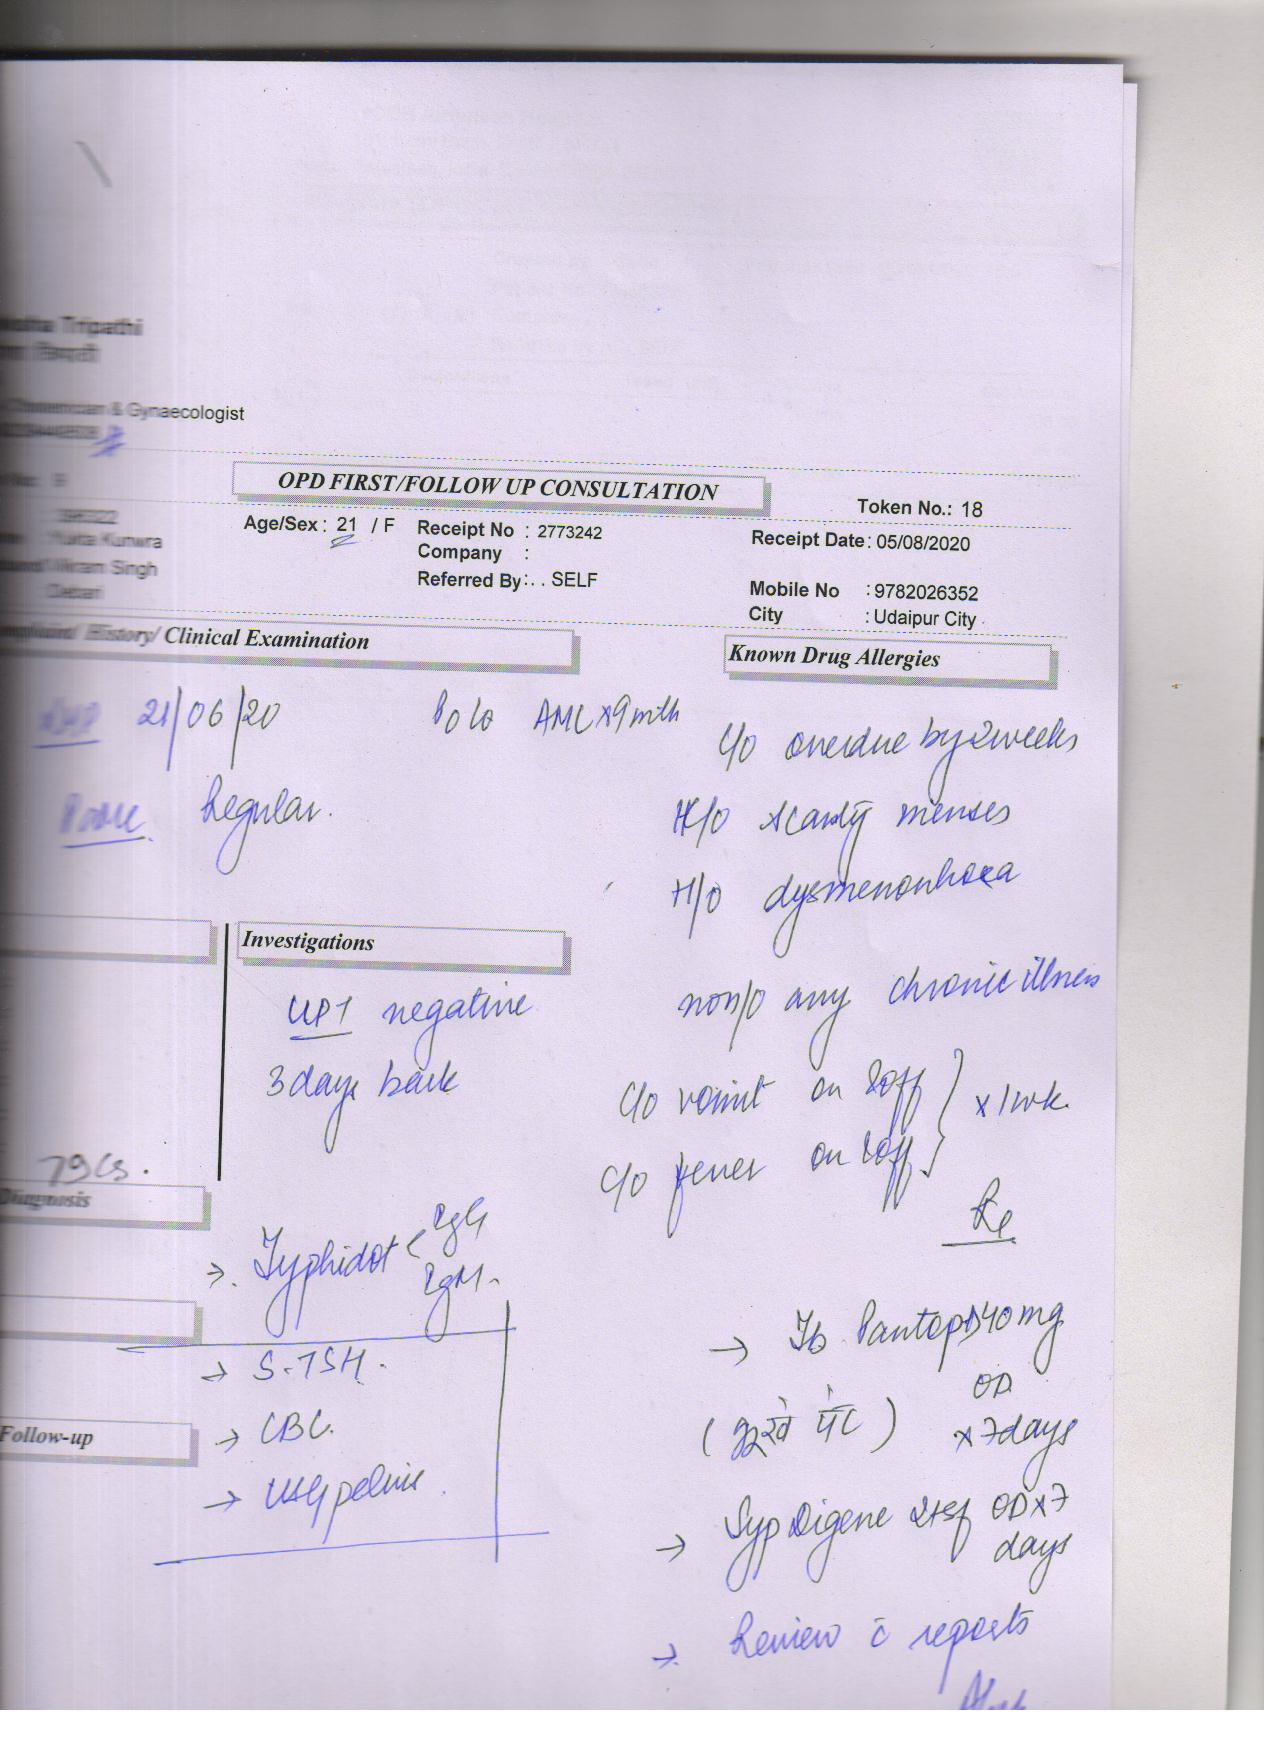 Tripathi
& Gynaecologist
OPD FIRST/FOLLOW UP CONSULTATION
Token No.: 18
Age/Sex : 21 / F
Receipt No : 2773242
Receipt Date : 05/08/2020
Kunwra
Company :
Singh
Referred By: . . SELF
Mobile No : 9782026352
City : Udaipur City
History/ Clinical Examination
Known Drug Allergies
21/06/20
AML x 9 mth
c/o overdue by 2 weeks
Regular.
H/o scanty menses
H/o dysmenorrhoea
Investigations
UPT negative
3 days back
any chronic illness
c/o vomit on & off
c/o fever on & off
x 1 wk.
79
Diagnosis
Rx
→ Typhidot < IgG
IgM.
→ S.TSH.
→ CBC.
→ USG pelvis.
Follow-up
→ Tb Pantop 40 mg
OD
x 7 days
→ Syp Digene 2 tsf OD x 7
days
→ Review c̄ reports